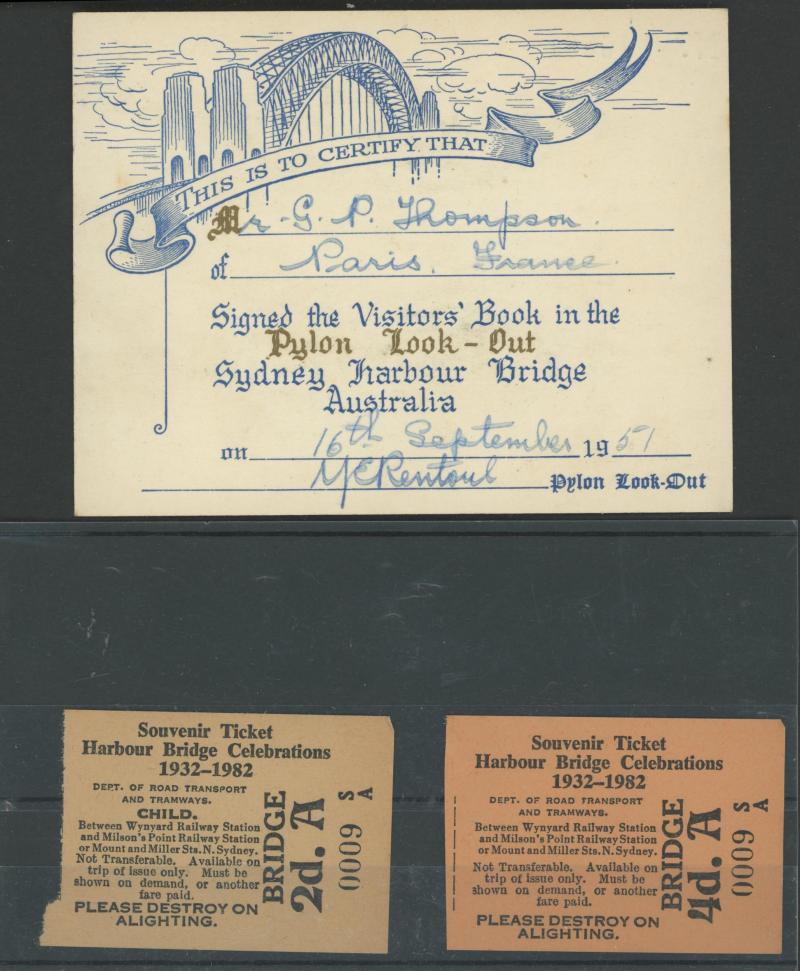 THIS IS TO CERTIFY THAT
Mr. G. P. Thompson.
of Paris, France.
Signed the Visitors' Book in the
Pylon Look-Out
Sydney Harbour Bridge
Australia
on 16th September 1951
Y E Rentoul Pylon Look-Out
Souvenir Ticket
Harbour Bridge Celebrations
1932–1982
DEPT. OF ROAD TRANSPORT
AND TRAMWAYS.
CHILD.
Between Wynyard Railway Station
and Milson's Point Railway Station
or Mount and Miller Sts. N. Sydney.
Not Transferable. Available on
trip of issue only. Must be
shown on demand, or another
fare paid.
PLEASE DESTROY ON
ALIGHTING.
BRIDGE
2d. A
0009
S
A
Souvenir Ticket
Harbour Bridge Celebrations
1932–1982
DEPT. OF ROAD TRANSPORT
AND TRAMWAYS.
Between Wynyard Railway Station
and Milson's Point Railway Station
or Mount and Miller Sts. N. Sydney.
Not Transferable. Available on
trip of issue only. Must be
shown on demand, or another
fare paid.
PLEASE DESTROY ON
ALIGHTING.
BRIDGE
4d. A
0009
S
A